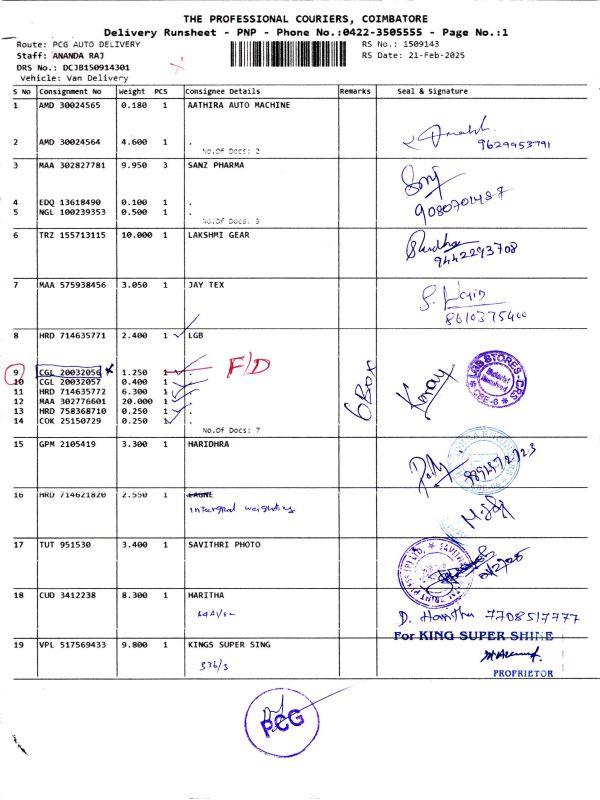 THE PROFESSIONAL COURIERS, COIMBATORE
Delivery Runsheet - PNP - Phone No.:0422-3505555 - Page No.:1
Route: PCG AUTO DELIVERY RS No.: 1509143
Staff: ANANDA RAJ RS Date: 21-Feb-2025
DRS No.: DCJB150914301
Vehicle: Van Delivery
S No Consignment No Weight PCS Consignee Details Remarks Seal & Signature
1 AMD 30024565 0.180 1 AATHIRA AUTO MACHINE
2 AMD 30024564 4.600 1 .
No.Of Docs: 2
9629953791
3 MAA 302827781 9.950 3 SANZ PHARMA
4 EDQ 13618490 0.100 1 .
5 NGL 100239353 0.500 1 .
No.Of Docs: 3
9080701487
6 TRZ 155713115 10.000 1 LAKSHMI GEAR
9442293708
7 MAA 575938456 3.050 1 JAY TEX
8610375400
8 HRD 714635771 2.400 1 LGB
9 CGL 20032056 1.250 1 F/D
10 CGL 20032057 0.400 1 .
11 HRD 714635772 6.300 1 .
12 MAA 302776601 20.000 1 .
13 HRD 758368710 0.250 1 .
14 COK 25150729 0.250 1 .
No.Of Docs: 7
6 Box
LGB STORES-CRS
CBE-6
15 GPM 2105419 3.300 1 HARIDHRA
16 HRD 714621820 2.550 1 EAGNE
17 TUT 951530 3.400 1 SAVITHRI PHOTO
18 CUD 3412238 8.300 1 HARITHA
D. Haritha 7708517777
19 VPL 517569433 9.800 1 KINGS SUPER SING
336/3
For KING SUPER SHINE
PROPRIETOR
PCG